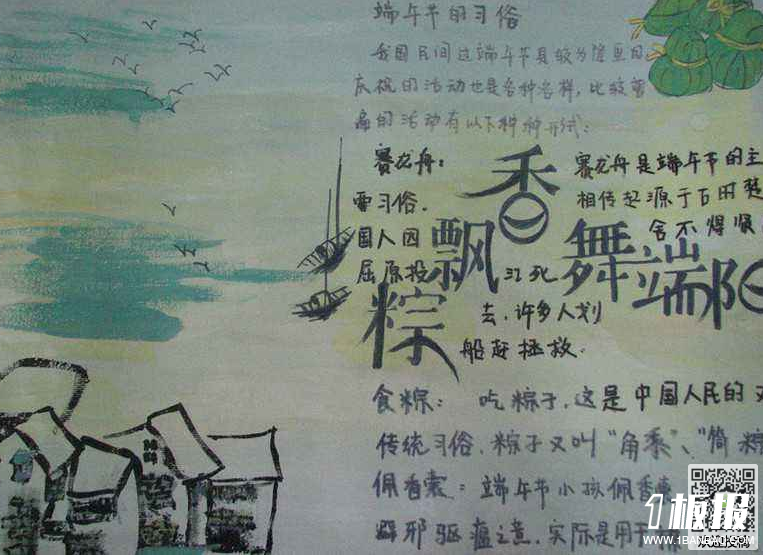 端午节的习俗
我国民间过端午节是较为隆重的
庆祝的活动也是各种各样，比较普
遍的活动有以下种种形式：
赛龙舟： 赛龙舟是端午节的主
要习俗. 相传起源于古时楚
国人因 舍不得贤
屈原投 江死
去，许多人划
船赶拯救.
粽飘香舞端阳
食粽： 吃粽子，这是中国人民的
传统习俗，粽子又叫"角黍"、"筒粽
佩香囊：端午节小孩佩香囊
辟邪驱瘟之意，实际是用于
1板报
WWW.1BANBAO.COM